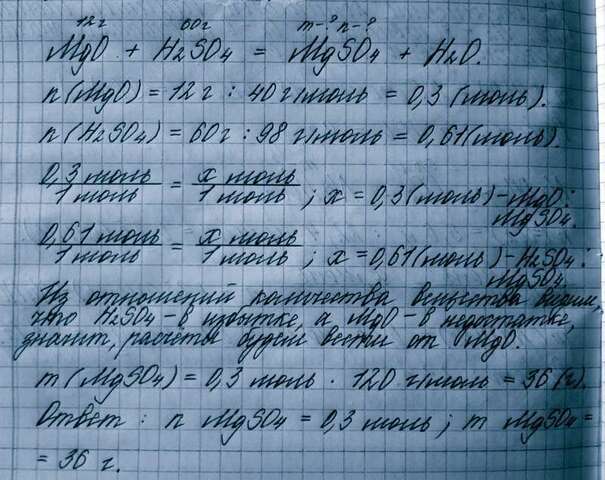 12г 60г m-? n-?
MgO + H2SO4 = MgSO4 + H2O.
n(MgO) = 12 г : 40 г/моль = 0,3 (моль).
n(H2SO4) = 60г : 98 г/моль = 0,61(моль).
0,3 моль / 1 моль = x моль / 1 моль ; x = 0,3(моль) - MgO :
MgSO4.
0,61 моль / 1 моль = x моль / 1 моль ; x = 0,61(моль) - H2SO4 :
MgSO4
Из отношений количества вещества видим,
что H2SO4 - в избытке, а MgO - в недостатке,
значит, расчёты будем вести от MgO.
m (MgSO4) = 0,3 моль · 120 г/моль = 36 (г).
Ответ : n MgSO4 = 0,3 моль ; m MgSO4 =
= 36 г.